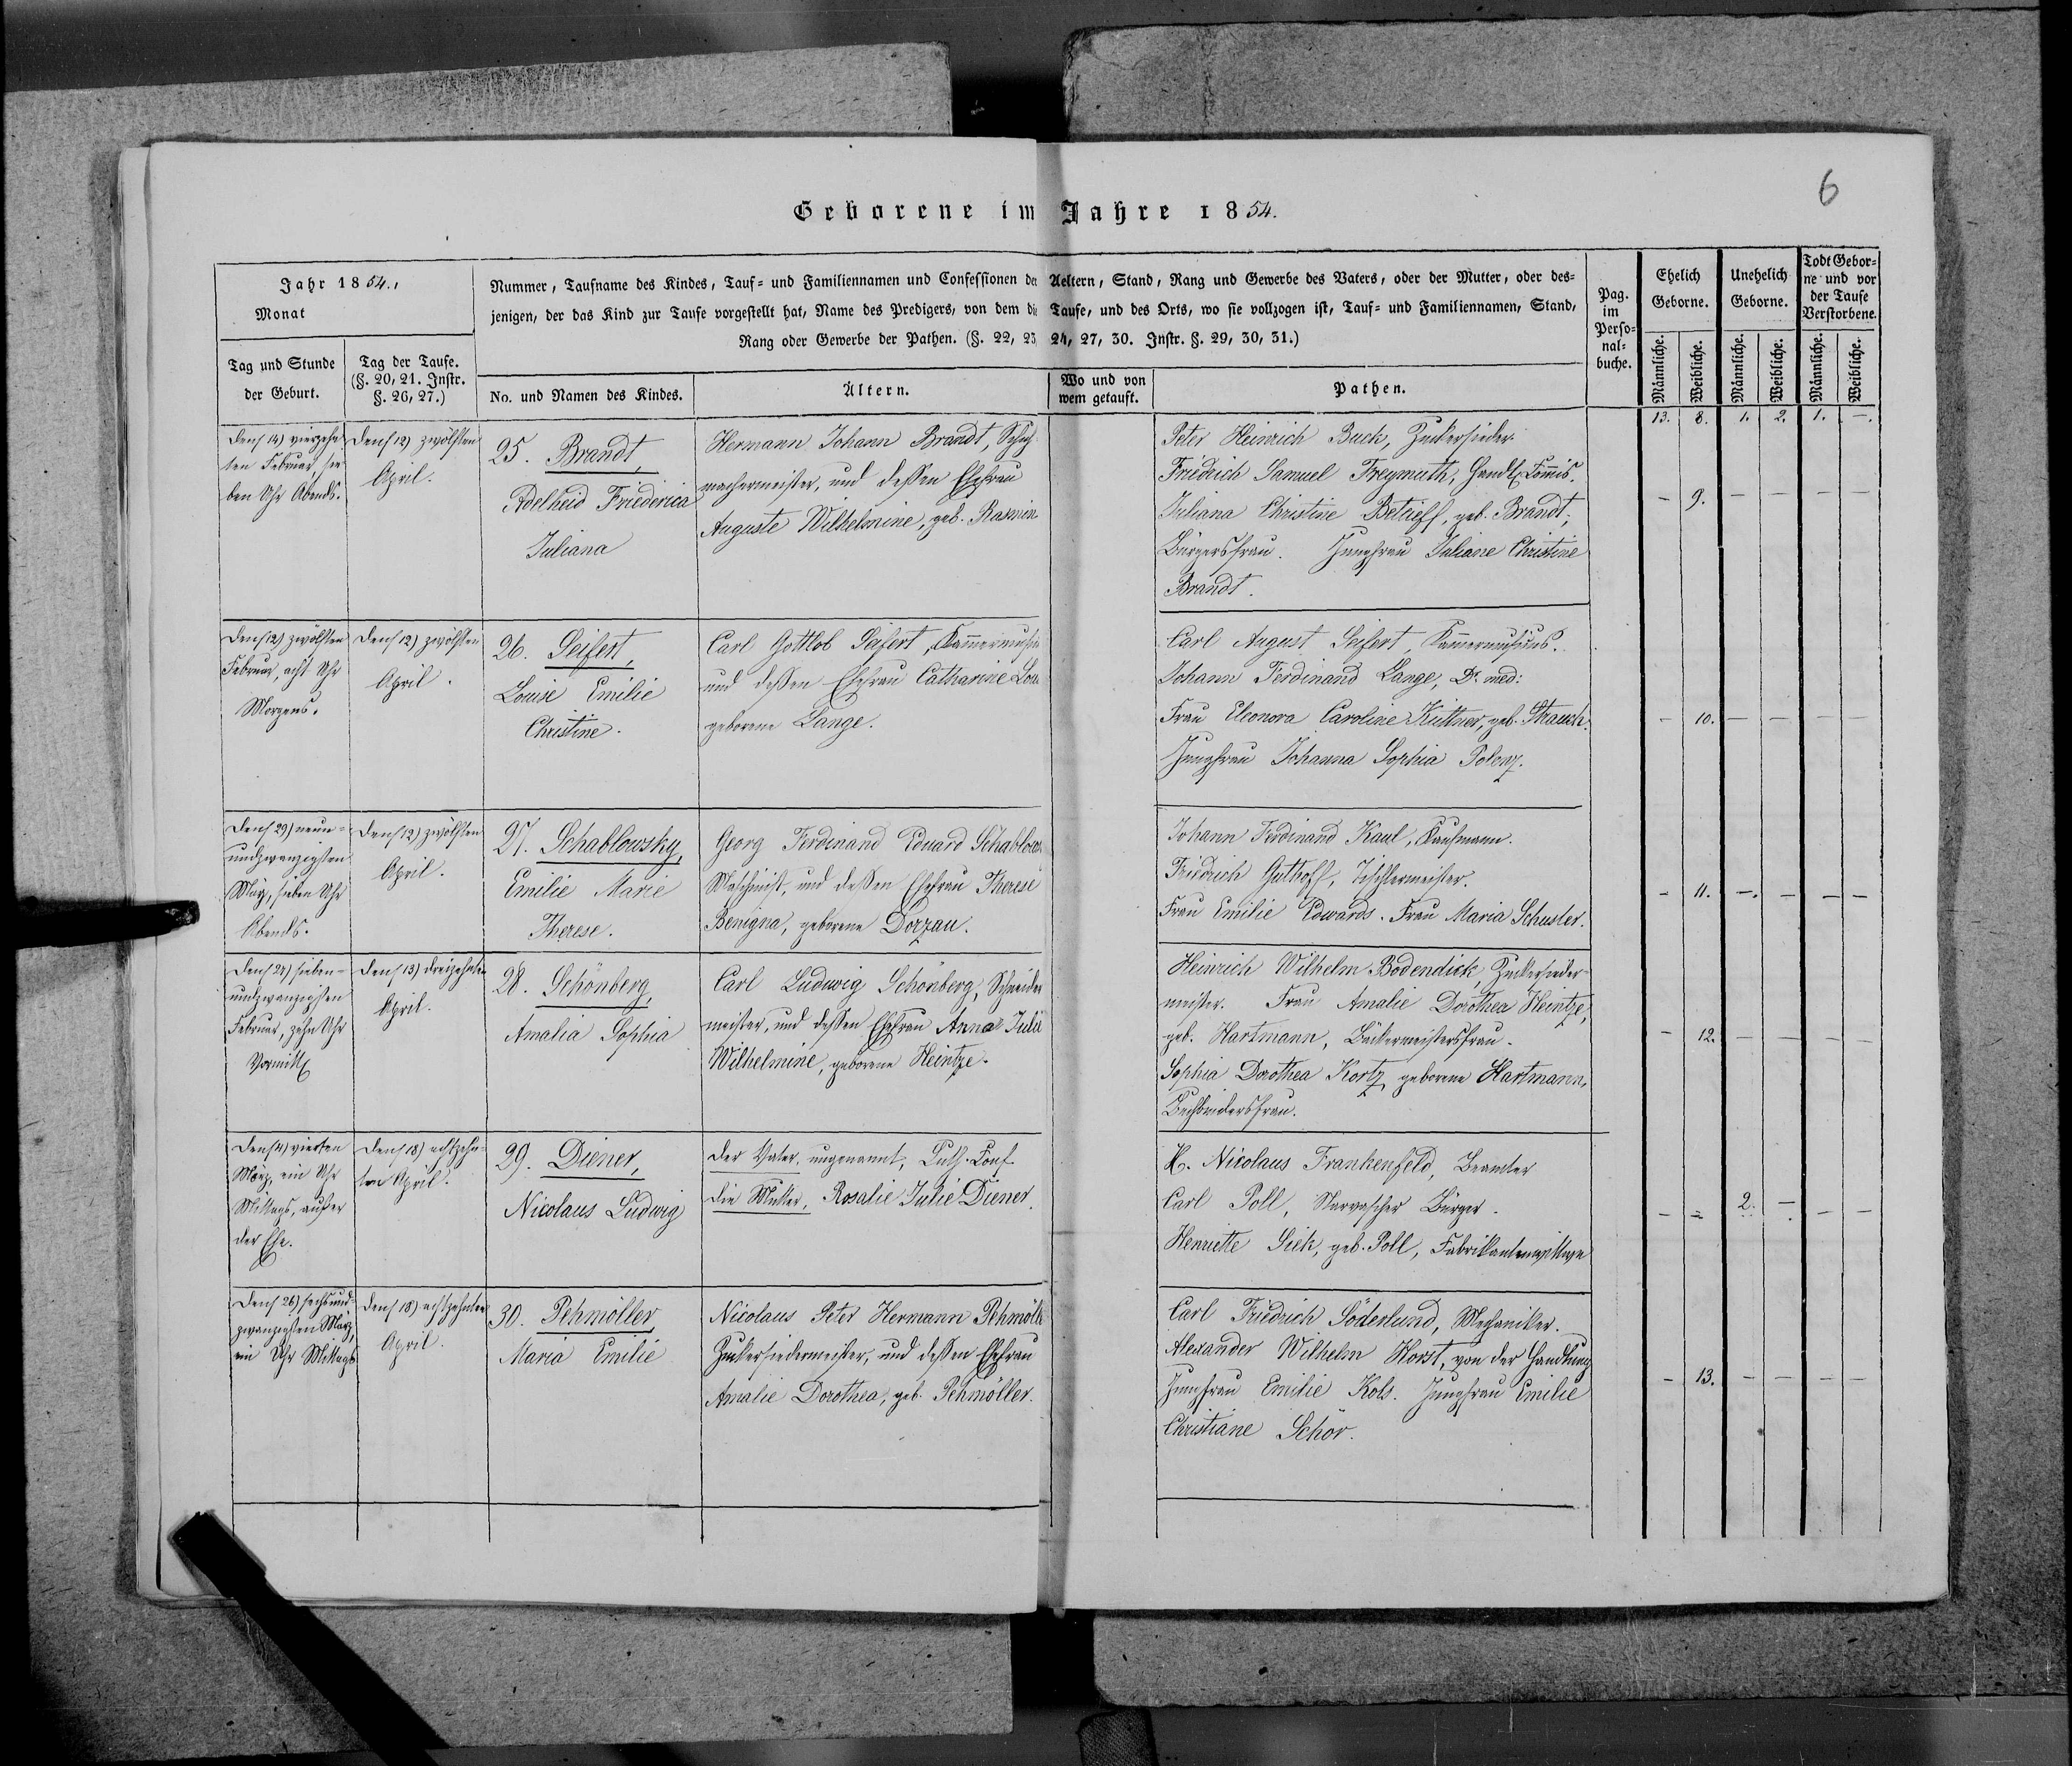 6
Geborene im Jahre 1854.
Jahr 1854.,
Monat
Tag und Stunde
der Geburt.
Tag der Taufe.
(§. 20, 21. Instr.
§. 26, 27.)
Nummer, Taufname des Kindes, Tauf- und Familiennamen und Confessionen der Aeltern, Stand, Rang und Gewerbe des Vaters, oder der Mutter, oder des-
jenigen, der das Kind zur Taufe vorgestellt hat, Name des Predigers, von dem die Taufe, und des Orts, wo sie vollzogen ist, Tauf- und Familiennamen, Stand,
Rang oder Gewerbe der Pathen. (§. 22, 23 24, 27, 30. Instr. §. 29, 30, 31.)
No. und Namen des Kindes.
Ältern.
Wo und von
wem getauft.
Pathen.
Pag.
im
Perso-
nal-
buche.
Ehelich
Geborne.
Unehelich
Geborne.
Todt Gebor-
ne und vor
der Taufe
Verstorbene.
Männliche.
Weibliche.
Männliche.
Weibliche.
Männliche.
Weibliche.
13. 8. 1. 2. 1. —.
Den (14) vierzehn
ten Februar, sie
ben Uhr Abends.
Den (12) zwölften
April.
25. Brandt,
Adelheid Friederica
Juliana
Hermann Johann Brandt, Schuh
machermeister, und dessen Ehefrau
Auguste Wilhelmine, geb.
Peter Heinrich Buch, Zuckersieder.
Friedrich Samuel Freymuth, Handl. Commis.
Juliana Christine Betcieff, geb. Brandt,
Bürgersfrau. Jungfrau Juliane Christine
Brandt.
– 9. – – – –
Den (12) zwölften
Februar, acht Uhr
Morgens.
Den (12) zwölften
April.
26. Seifert,
Louise Emilie
Christine.
Carl Gottlob Seifert, Kammermusi
und dessen Ehefrau Catharine Lou
geborene Lange.
Carl August Seifert, Kammermusicus.
Johann Ferdinand Lange, Dr. med:
Frau Eleonora Caroline Küttner, geb. Strauch.
Jungfrau Johanna Sophia Polenz.
– 10. – – – –
Den (29) neun-
undzwanzigsten
März, sieben Uhr
Abends.
Den (12) zwölften
April.
27. Schablowsky,
Emilie Marie
Therese.
Georg Ferdinand Eduard Schablows
Maschinist, und dessen Ehefrau Therese
Benigna, geborene Dorzau.
Johann Ferdinand Kaul, Kaufmann.
Friedrich Guthoff, Tischlermeister.
Frau Emilie Edwards. Frau Maria Schuster.
– 11. –. – – –
Den (27) sieben-
undzwanzigsten
Februar, zehn Uhr
Vormitt
Den (13) dreizehnten
April.
28. Schönberg,
Amalia Sophia
Carl Ludwig Schönberg, Schneider
meister, und dessen Ehefrau Anna Julie
Wilhelmine, geborene Heintze.
Heinrich Wilhelm Bodendick, Zuckersieder-
meister. Frau Amalie Dorothea Heintze,
geb. Hartmann, Bäckermeistersfrau.
Sophia Dorothea Kortz, geborene Hartmann,
Buchbindersfrau.
– 12. – – – –
Den (4) vierten
März, ein Uhr
Mittags, außer
der Ehe.
Den (18) achtzehn-
ten April.
29. Diener,
Nicolaus Ludwig
Der Vater, ungenannt, Luth. Conf.
Die Mutter, Rosalie Julie Diener.
H. Nicolaus Frankenfeld, Beamter
Carl Poll, Narvascher Bürger.
Henriette Siek, geb. Poll, Fabrikantenwittwe
– – 2. – – –
Den (26) sechsund-
zwanzigsten März,
ein Uhr Mittags
Den (18) achtzehnten
April.
30. Pehmöller,
Maria Emilie
Nicolaus Peter Hermann Pehmölle
Zuckersiedermeister, und dessen Ehefrau
Amalie Dorothea, geb. Pehmöller.
Carl Friedrich Söderlund, Mechaniker.
Alexander Wilhelm Horst, von der Handlung
Jungfrau Emilie Kols. Jungfrau Emilie
Christiane Schör.
– 13. – – – –